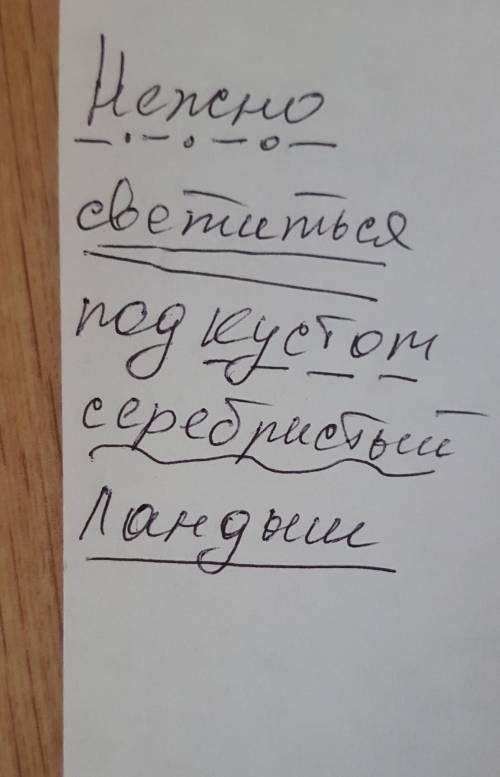 Нежно
светиться
под кустом
серебристый
Ландыш